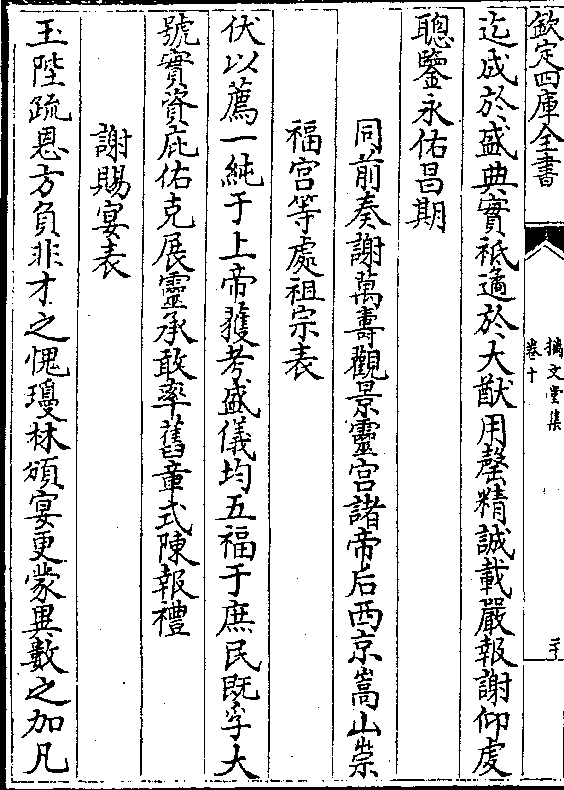 欽定四庫全書
摛文堂集
卷十
二十
迄成於盛典實祗遹於大猷用罄精誠載嚴報謝仰虔
聰鑒永佑昌期
同前奏謝萬壽觀景靈宫諸帝后西京嵩山崇
福宫等處祖宗表
伏以薦一純于上帝獲考盛儀均五福于庶民既孚大
號實資庇佑克展靈承敢率舊章式陳報禮
謝賜宴表
玉陛疏恩方負非才之愧瓊林頒宴更蒙異數之加凡